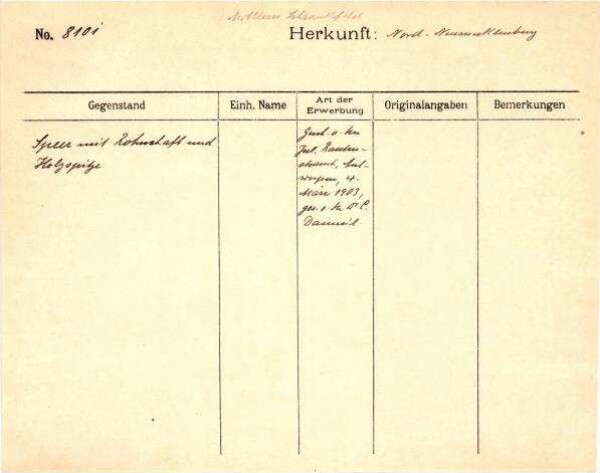 Mittleres Schrankfeld
No. 8101 Herkunft: Nord-Neumecklenburg
Gegenstand Einh. Name Art der Erwerbung Originalangaben Bemerkungen
Speer mit Rohrschaft und
Holzspitze
Jul. Rauten-
strauch, Ant-
werpen, 4.
März 1903,
ges. v. Dr C.
Danneil